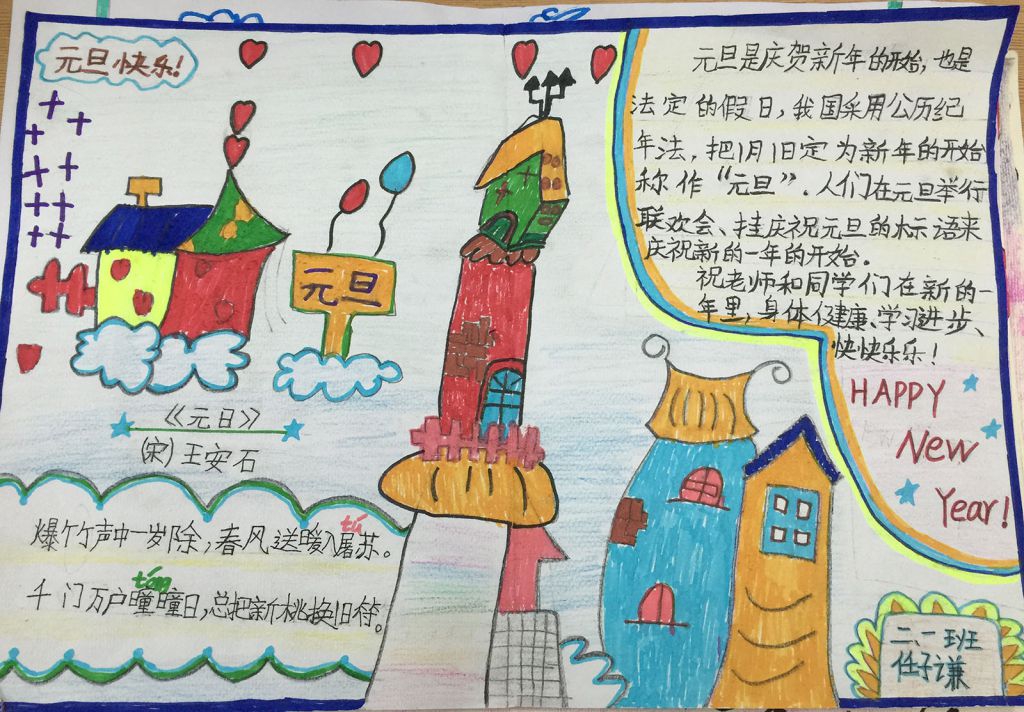 元旦快乐!
元旦
《元日》
(宋)王安石
tú
爆竹声中一岁除,春风送暖入屠苏。
tóng
千门万户曈曈日,总把新桃换旧符。
元旦是庆贺新年的开始,也是
法定的假日,我国采用公历纪
年法,把1月1日定为新年的开始
称作“元旦”.人们在元旦举行
联欢会、挂庆祝元旦的标语来
庆祝新的一年的开始.
祝老师和同学们在新的一
年里,身体健康、学习进步、
快快乐乐!
HAPPY
New
Year!
二、一班
任子谦